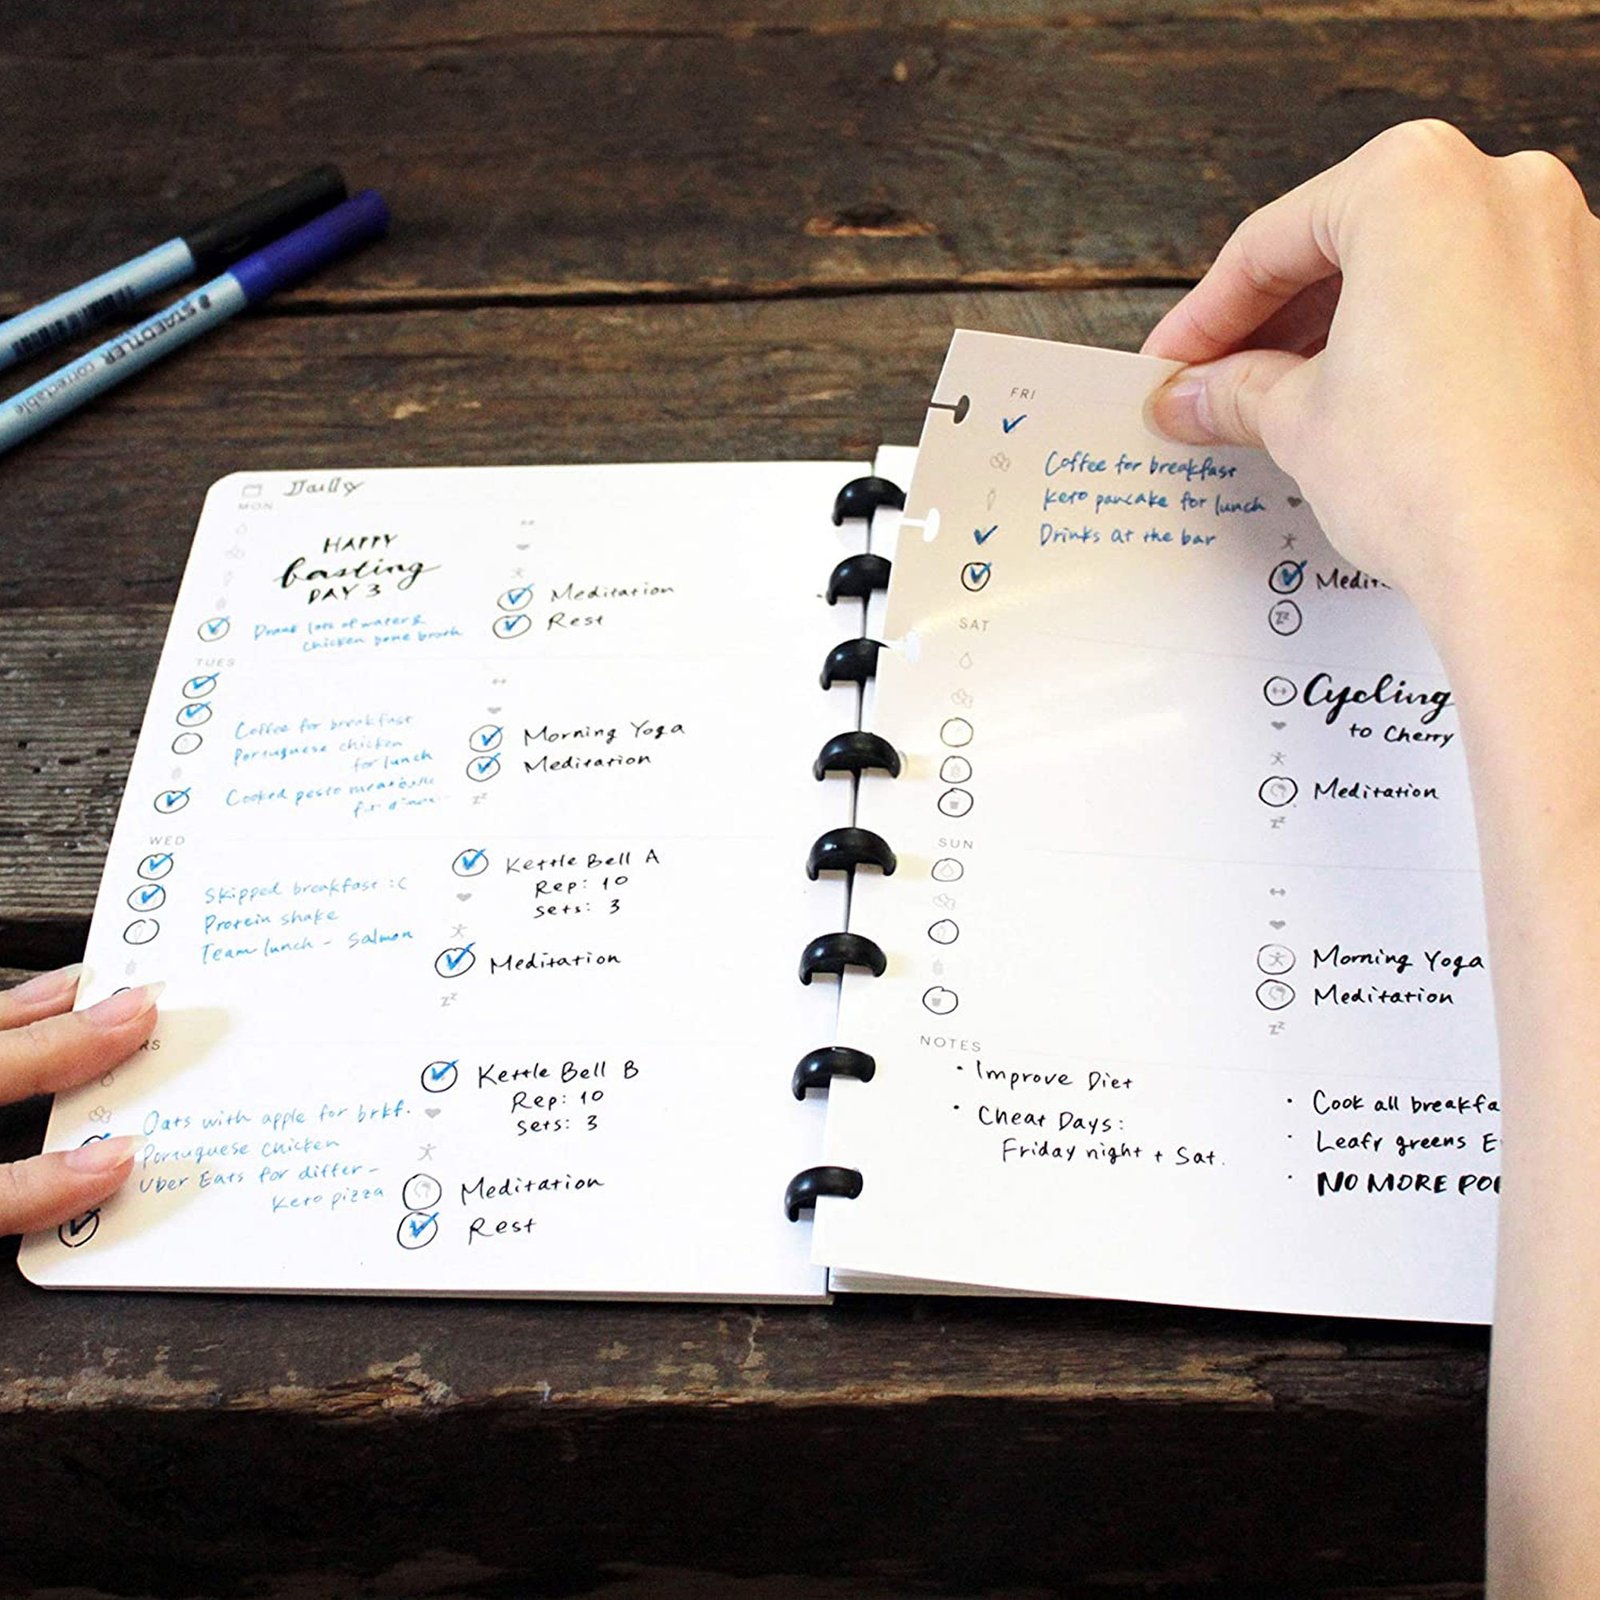 STAEDTLER correctable
Daily
MON
HAPPY
fasting
DAY 3
Drank lots of water &
chicken bone broth
Meditation
Rest
TUES
Coffee for breakfast
Portuguese chicken
for lunch
Cooked pesto meatballs
for dinner
Morning Yoga
Meditation
zZ
WED
Skipped breakfast :c
Protein shake
Team lunch - Salmon
Kettle Bell A
Rep: 10
sets: 3
Meditation
zZ
RS
Oats with apple for brkf.
Portuguese chicken
Uber Eats for differ -
Keto pizza
Kettle Bell B
Rep: 10
sets: 3
Meditation
Rest
FRI
Coffee for breakfast
Keto pancake for lunch
Drinks at the bar
zZ
SAT
Cycling
to Cherry
Meditation
zZ
SUN
Morning Yoga
Meditation
zZ
NOTES
• Improve Diet
• Cheat Days:
Friday night + Sat.
• Cook all breakfa
• Leafy greens E
• NO MORE